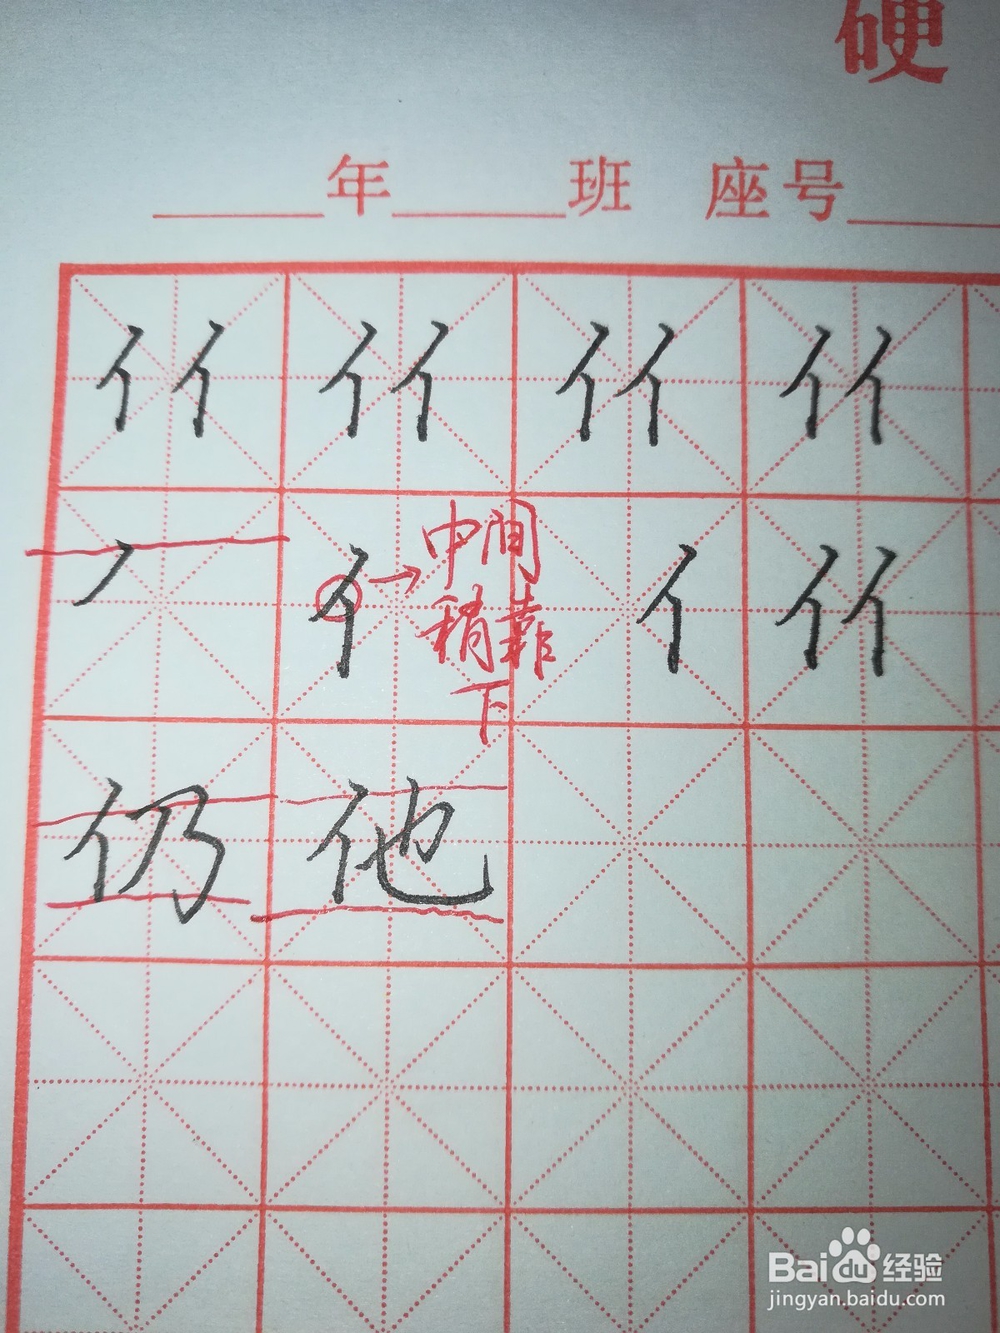 硬
年 班 座号
亻亻 亻亻 亻亻 亻亻
丿 亻 亻 亻亻
中间
稍靠
下
仍 他
Baidu经验
jingyan.baidu.com